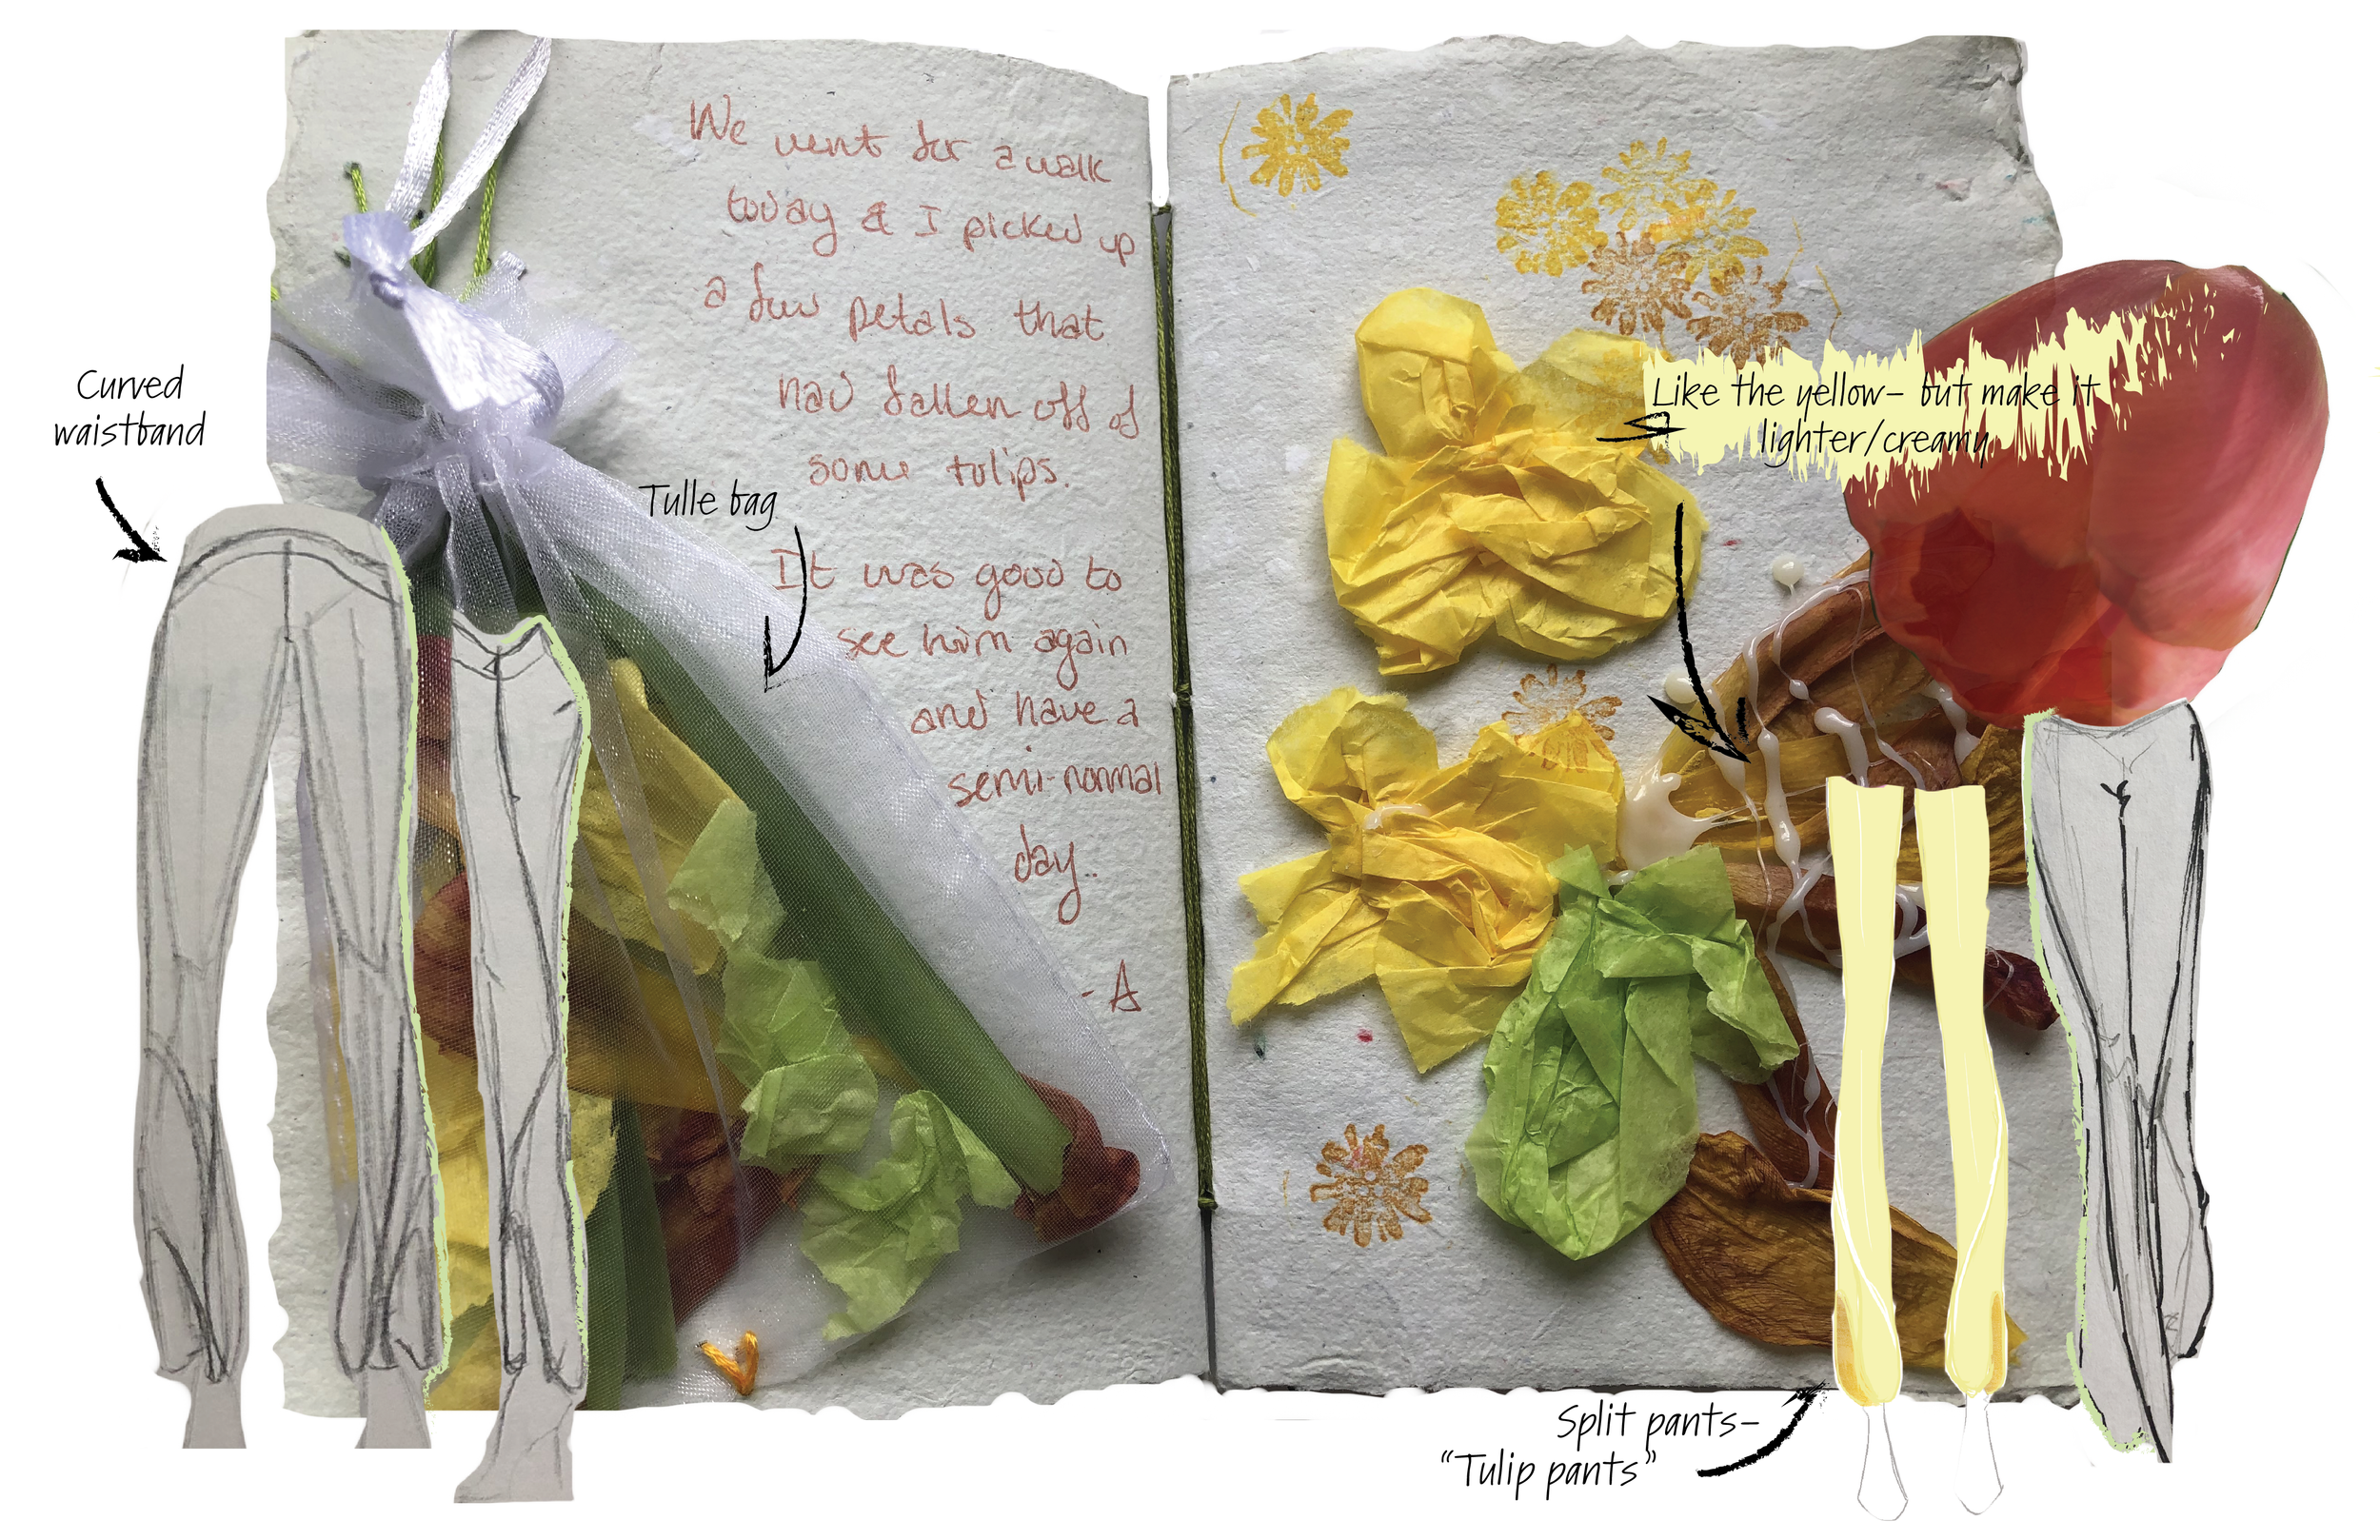 We went for a walk
today & I picked up
a few petals that
had fallen off of
some tulips.
It was good to
see him again
and have a
semi-normal
day.
-A
Curved
waistband
Tulle bag
Like the yellow- but make it
lighter/creamy
Split pants-
"Tulip pants"